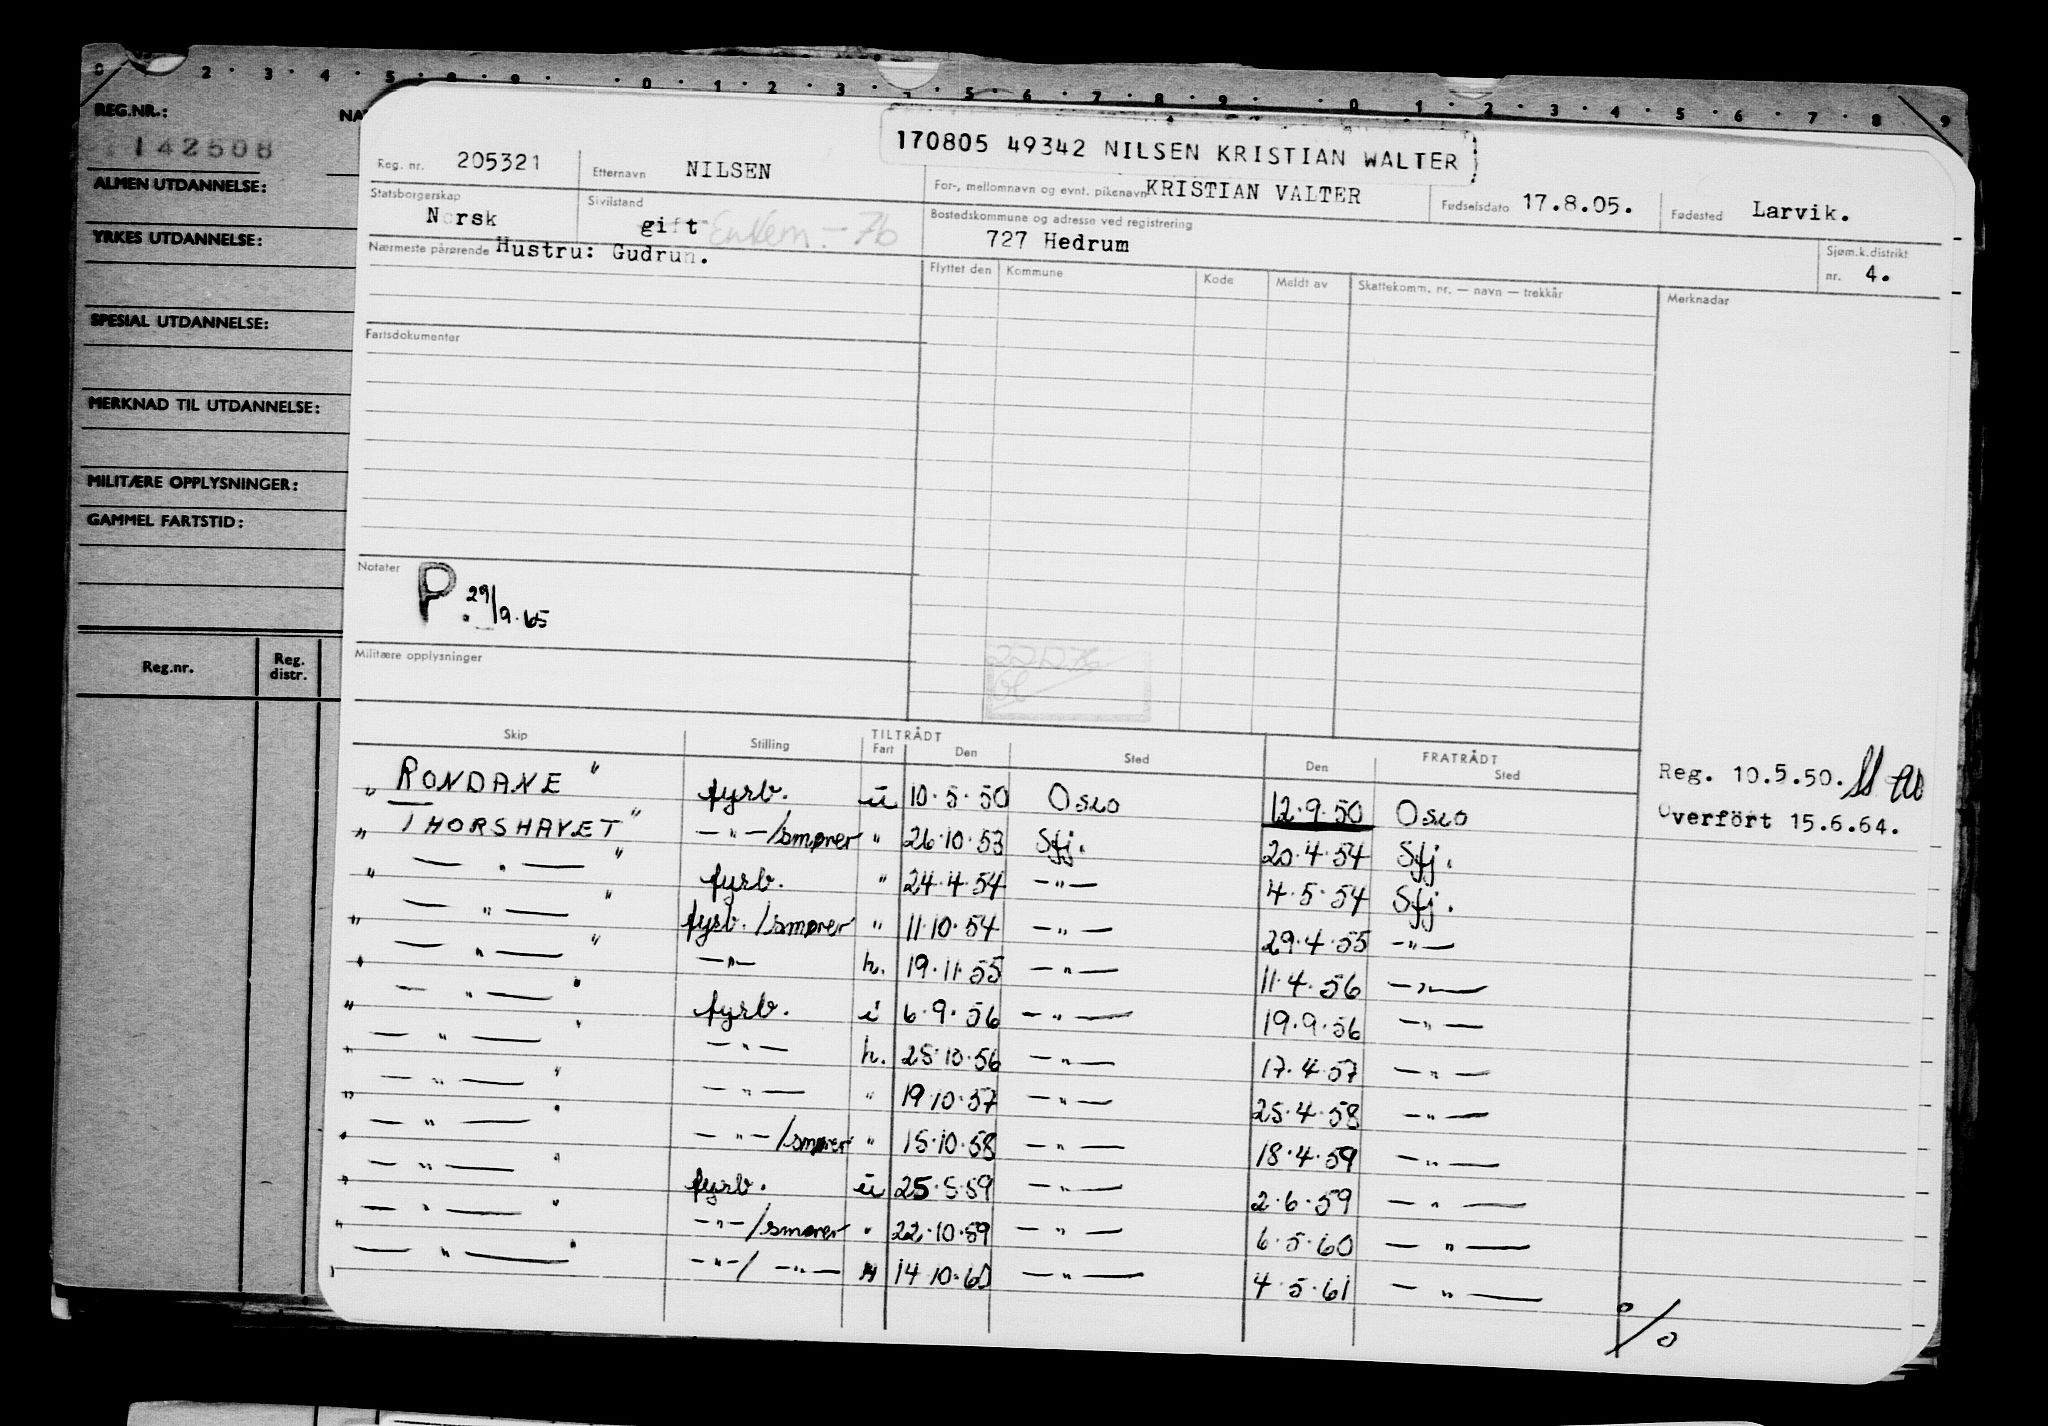 REG.NR.:
142508
ALMEN UTDANNELSE:
YRKES UTDANNELSE:
SPESIAL UTDANNELSE:
MERKNAD TIL UTDANNELSE:
MILITÆRE OPPLYSNINGER:
GAMMEL FARTSTID:
Reg.nr. Reg. distr.
170805 49342 NILSEN KRISTIAN WALTER
Reg. nr. 205321 Etternavn NILSEN For-, mellomnavn og evnt. pikenavn KRISTIAN VALTER Fødselsdato 17.8.05. Fødested Larvik.
Statsborgerskap Norsk Sivilstand gift Enkem. - 76 Bostedskommune og adresse ved registrering 727 Hedrum Sjøm.k.distrikt nr. 4.
Nærmeste pårørende Hustru: Gudrun.
Flyttet den Kommune Kode Meldt av Skattekomm. nr. — navn — trekkår Merknader
Fartsdokumenter
Notater P. 29/9.65
Militære opplysninger
Skip Stilling TILTRÅDT Fart Den Sted FRATRÅDT Den Sted
" RONDANE " fyrb. u 10.5.50 Oslo 12.9.50 Oslo
" THORSHAVET " —"—/smører " 26.10.53 Sfj. 20.4.54 Sfj.
" —"— " fyrb. " 24.4.54 —"— 4.5.54 Sfj.
" —"— " fyrb./smører " 11.10.54 —"— 29.4.55 —"—
" —"— " —"— h. 19.11.55 —"— 11.4.56 —"—
" —"— " fyrb. i 6.9.56 —"— 19.9.56 —"—
" —"— " —"— h. 25.10.56 —"— 17.4.57 —"—
" —"— " —"— " 19.10.57 —"— 25.4.58 —"—
" —"— " —"—/smører " 15.10.58 —"— 18.4.59 —"—
" —"— " fyrb. u 25.5.59 —"— 2.6.59 —"—
" —"— " —"—/smører " 22.10.59 —"— 6.5.60 —"—
" —"— " —"—/ —"— " 14.10.60 —"— 4.5.61 —"—
Reg. 10.5.50.
Overfört 15.6.64.
o/o